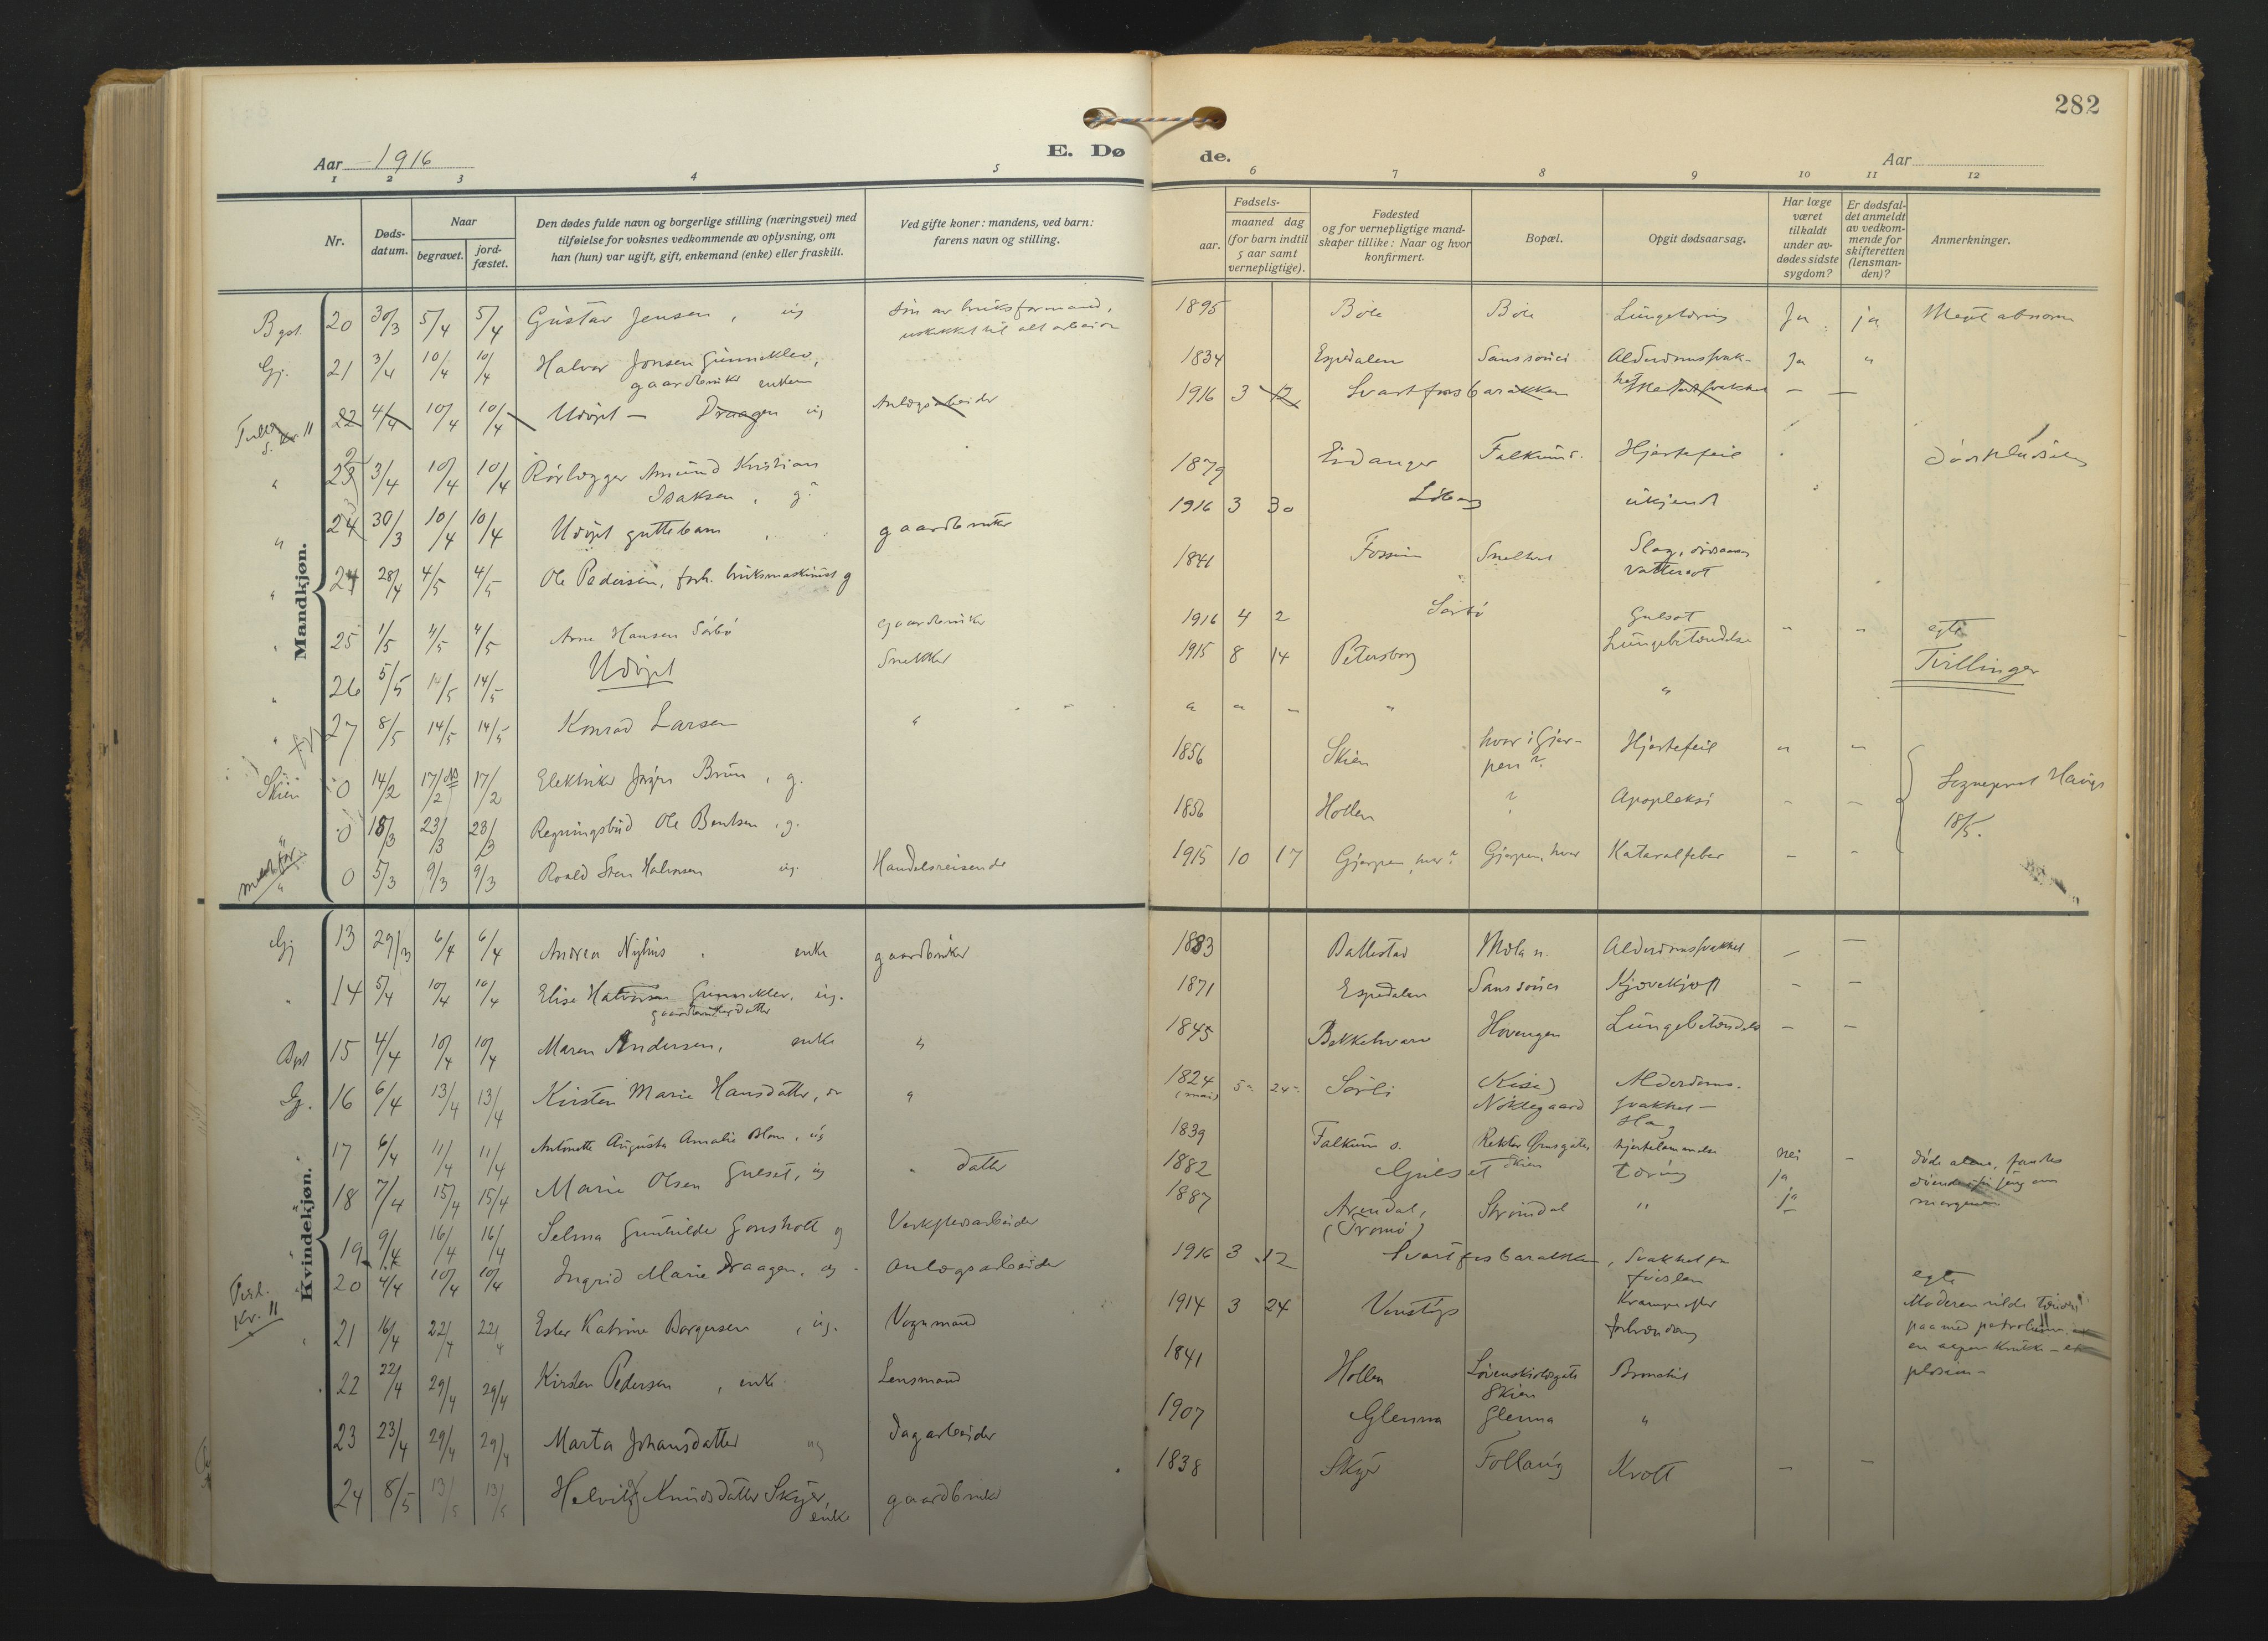 282
Aar 1916
E. Dø de.
Aar
1 2 3 4 5 6 7 8 9 10 11 12
Nr.
Døds-
datum.
Naar
begravet.
jord-
fæstet.
Den dødes fulde navn og borgerlige stilling (næringsvei) med
tilføielse for voksnes vedkommende av oplysning, om
han (hun) var ugift, gift, enkemand (enke) eller fraskilt.
Ved gifte koner: mandens, ved barn:
farens navn og stilling.
Fødsels-
aar.
maaned dag
(for barn indtil
5 aar samt
vernepligtige).
Fødested
og for vernepligtige mand-
skaper tillike: Naar og hvor
konfirmert.
Bopæl.
Opgit dødsaarsag.
Har læge
været
tilkaldt
under av-
dødes sidste
sygdom?
Er dødsfal-
det anmeldt
av vedkom-
mende for
skifteretten
(lensman-
den)?
Anmerkninger.
Mandkjøn.
20 30/3 5/4 5/4 Gustav Jensen, ug søn av bruksformand, 1895 Bøle Bøle Ja ja Meget abnorm
Gj. 21 3/4 10/4 10/4 Halvor Jonsen Gunneklev, 1834 Espedalen Sanssouci Alderdomssvak- Ja "
gaardbruker enkem
22 4/4 10/4 10/4 Udøpt — Draagen ug Anlægsarbeider 1916 3 12 Svartfosbarakken — —
" 23 3/4 10/4 10/4 Rørlægger Amund Kristian 1879 Eidanger Falkum s. Hjertefeil
Isaksen, g.
" 24 30/3 10/4 10/4 Udøpt guttebarn gaardbruker 1916 3 30 ukjendt
" 24 28/4 4/5 4/5 Ole Pedersen, forh. bruksmaskinist g 1841 Fossum Slag,
Vattersot
" 25 1/5 4/5 4/5 Arne Hansen Sørbø gaardbruker 1916 4 2 Sørbø Gulsot " " egte
" 26 5/5 14/5 14/5 Udøpt Snekker 1915 8 14 Petersborg Lungebetændelse Tvillinger
" 27 8/5 14/5 14/5 Konrad Larsen " " " " " "
Skien 0 14/2 17/2 17/2 Elektriker Brun, g. 1856 Skien hvor i Gjer- Hjertefeil " "
pen?
" 0 18/3 23/3 23/3 Regningsbud Ole Bentsen, g. 1856 Hollen ? Apopleksi - - Sogneprest
18/5.
" 0 5/3 9/3 9/3 Roald Sven Halvorsen ug. Handelsreisende 1915 10 17 Gjerpen, hvor? Gjerpen, hvor Kataralfeber - -
Kvindekjøn.
Gj 13 29/3 6/4 6/4 Andrea Nyhus, enke gaardbruker 1883 Ballestad Mæla n. Alderdomssvakhet — —
" 14 5/4 10/4 10/4 Elise Halvorsen Gunneklev, ug. 1871 Espedalen Sanssouci - —
gaardbrukerdatter
15 4/4 10/4 10/4 Maren Andersen, enke " 1845 Bekkehvarv Hovengen Lungebetændelse — —
Gj. 16 6/4 13/4 13/4 Kirsten Marie Hansdatter, " 1824 5 24 Sørli Kise Alderdoms-
(mai) Nøklegaard svakhet —
17 6/4 11/4 11/4 Antonette Augusta Amalie Blom, ug 1839 Falkum s. Rektor Ørnsgate, hjertelammelse nei - døde alene, fandtes
Skien
18 7/4 15/4 15/4 Marie Olsen Gulset, ug " datter 1882 Gulset tæring ja
19 9/4 16/4 16/4 Selma Gunhilde Gonsholt g Verkstedsarbeider 1887 Arendal, Strømdal " ja
(Tromø)
20 4/4 10/4 10/4 Ingrid Marie Draagen, ug - Anlægsarbeider 1916 3 12 Svartfosbarakken, Svakhet fra
fødslen egte
" 21 16/4 22/4 22/4 Ester Katrine Borgersen, ug. Vognmand 1914 3 24 Venstøp Krampe efter Moderen vilde tænde
forbrænding paa med petroleum
22 22/4 29/4 29/4 Kirsten Pedersen, enke Lensmand 1841 Hollen Løvenskioldsgate Bronchit plosion —
Skien
23 23/4 29/4 29/4 Marta Johansdatter ug Dagarbeider 1907 Glenna Glenna "
24 8/5 13/5 13/5 Helvik Knudsdatter Skyer, gaardbruker 1838 Skyer Follaug Kræft — —
enke